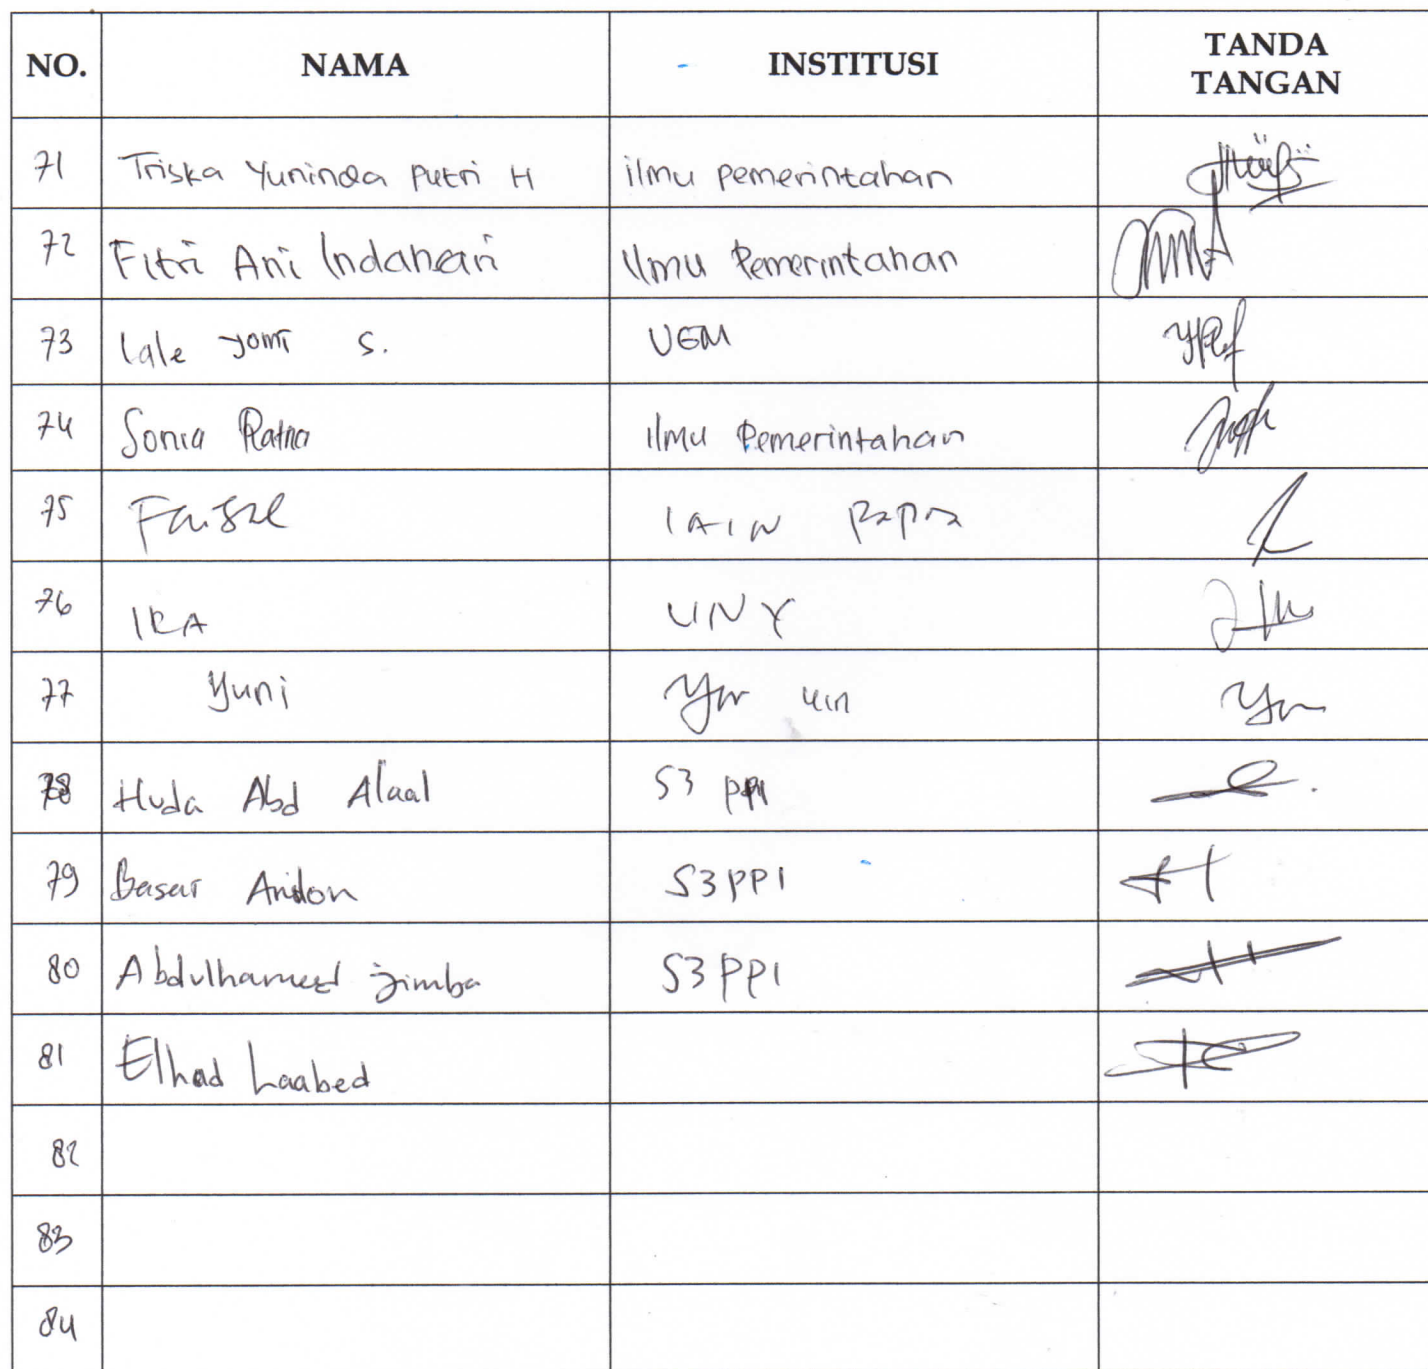 NO. NAMA INSTITUSI TANDA TANGAN
71 Triska Yuninda Putri H ilmu pemerintahan
72 Fitri Ani Indahsari Ilmu Pemerintahan
73 Lale Yomi S. UGM
74 Sonia Ratna Ilmu Pemerintahan
75 Faisal IAIN
76 IRA UNY
77 Yuni uin
78 Huda Abd Alaal S3 PPI
79 Basar S3 PPI
80 Abdulhameed Jimba S3 PPI
81 Elhad Laabed
82
83
84